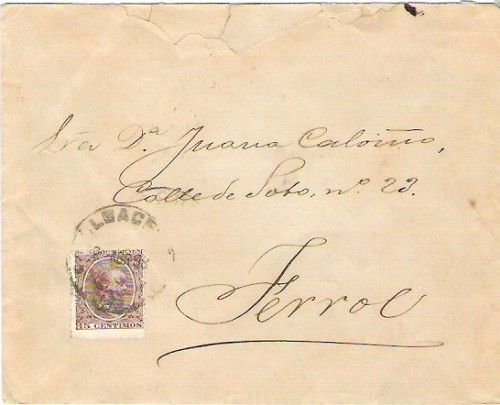 Sra Dª Juana Caloiño,
Calle de Soto, nº 23.
Ferrol
LBACE
15 CENTIMOS